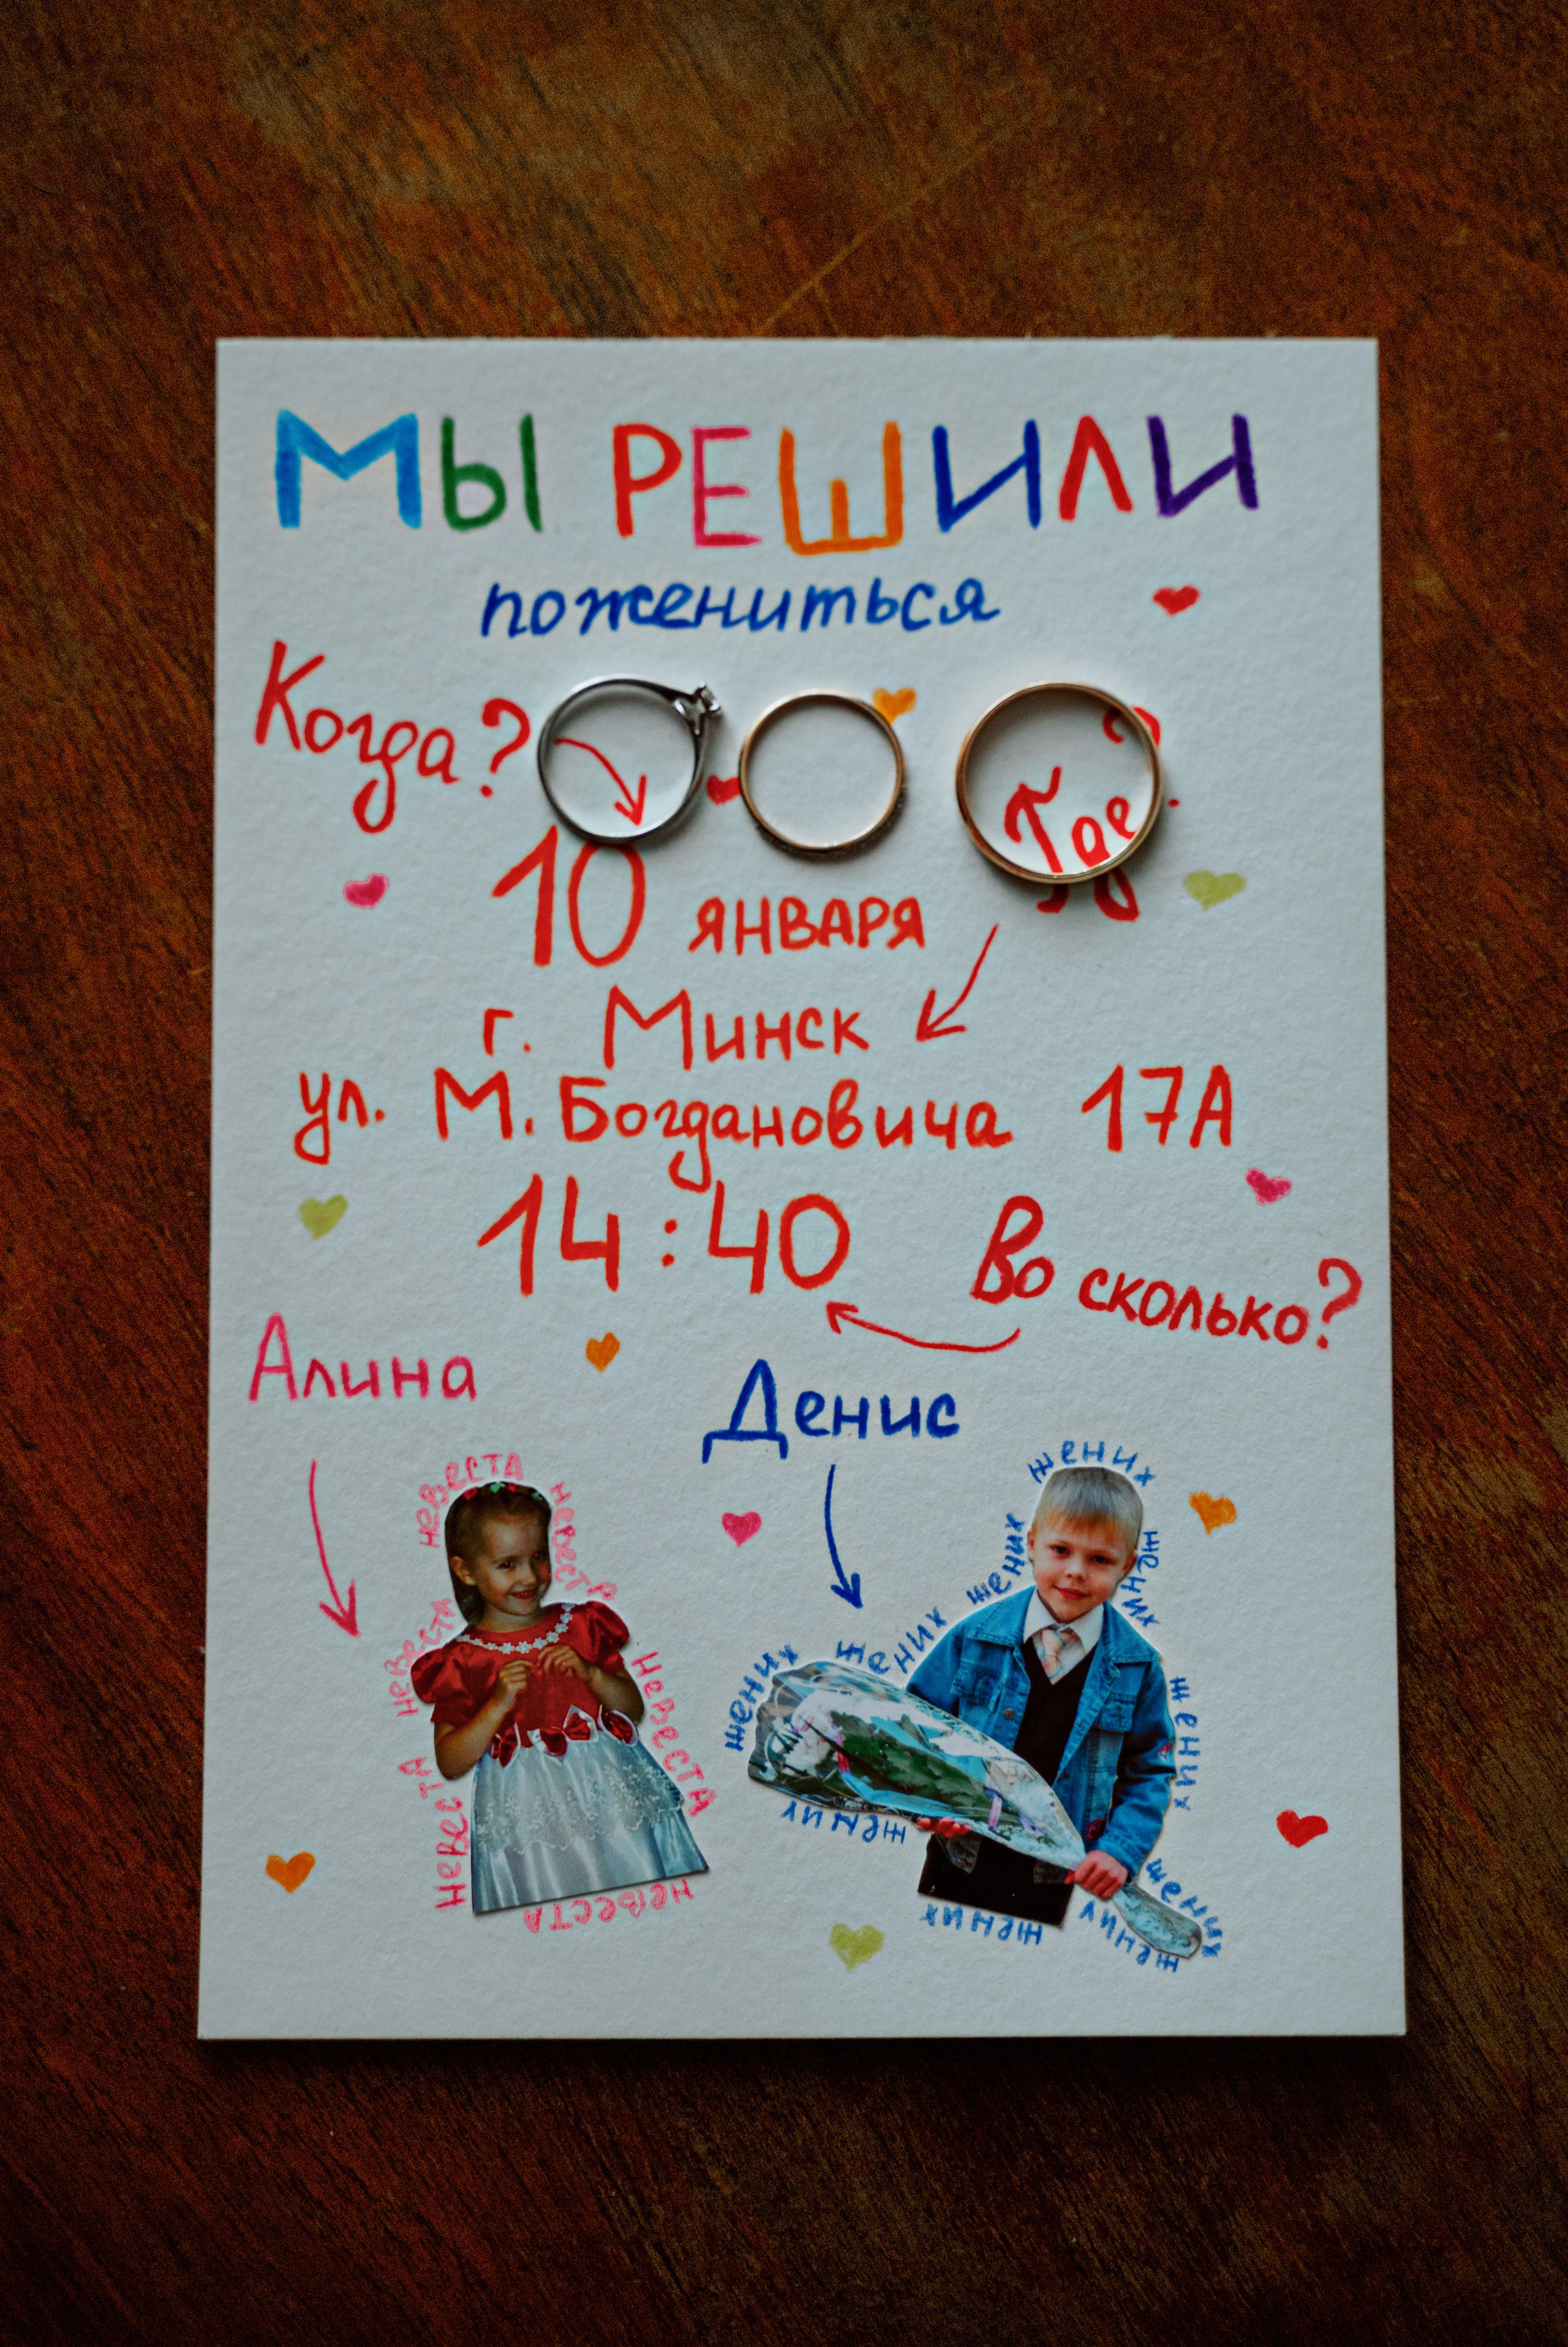 МЫ РЕШИЛИ
пожениться
Когда?
Где?
10 ЯНВАРЯ
г. Минск
ул. М. Богдановича 17А
14:40
Во сколько?
Алина
Денис
невеста
невеста
невеста
невеста
невеста
невеста
жених
жених
жених
жених
жених
жених
жених
жених
жених
жених